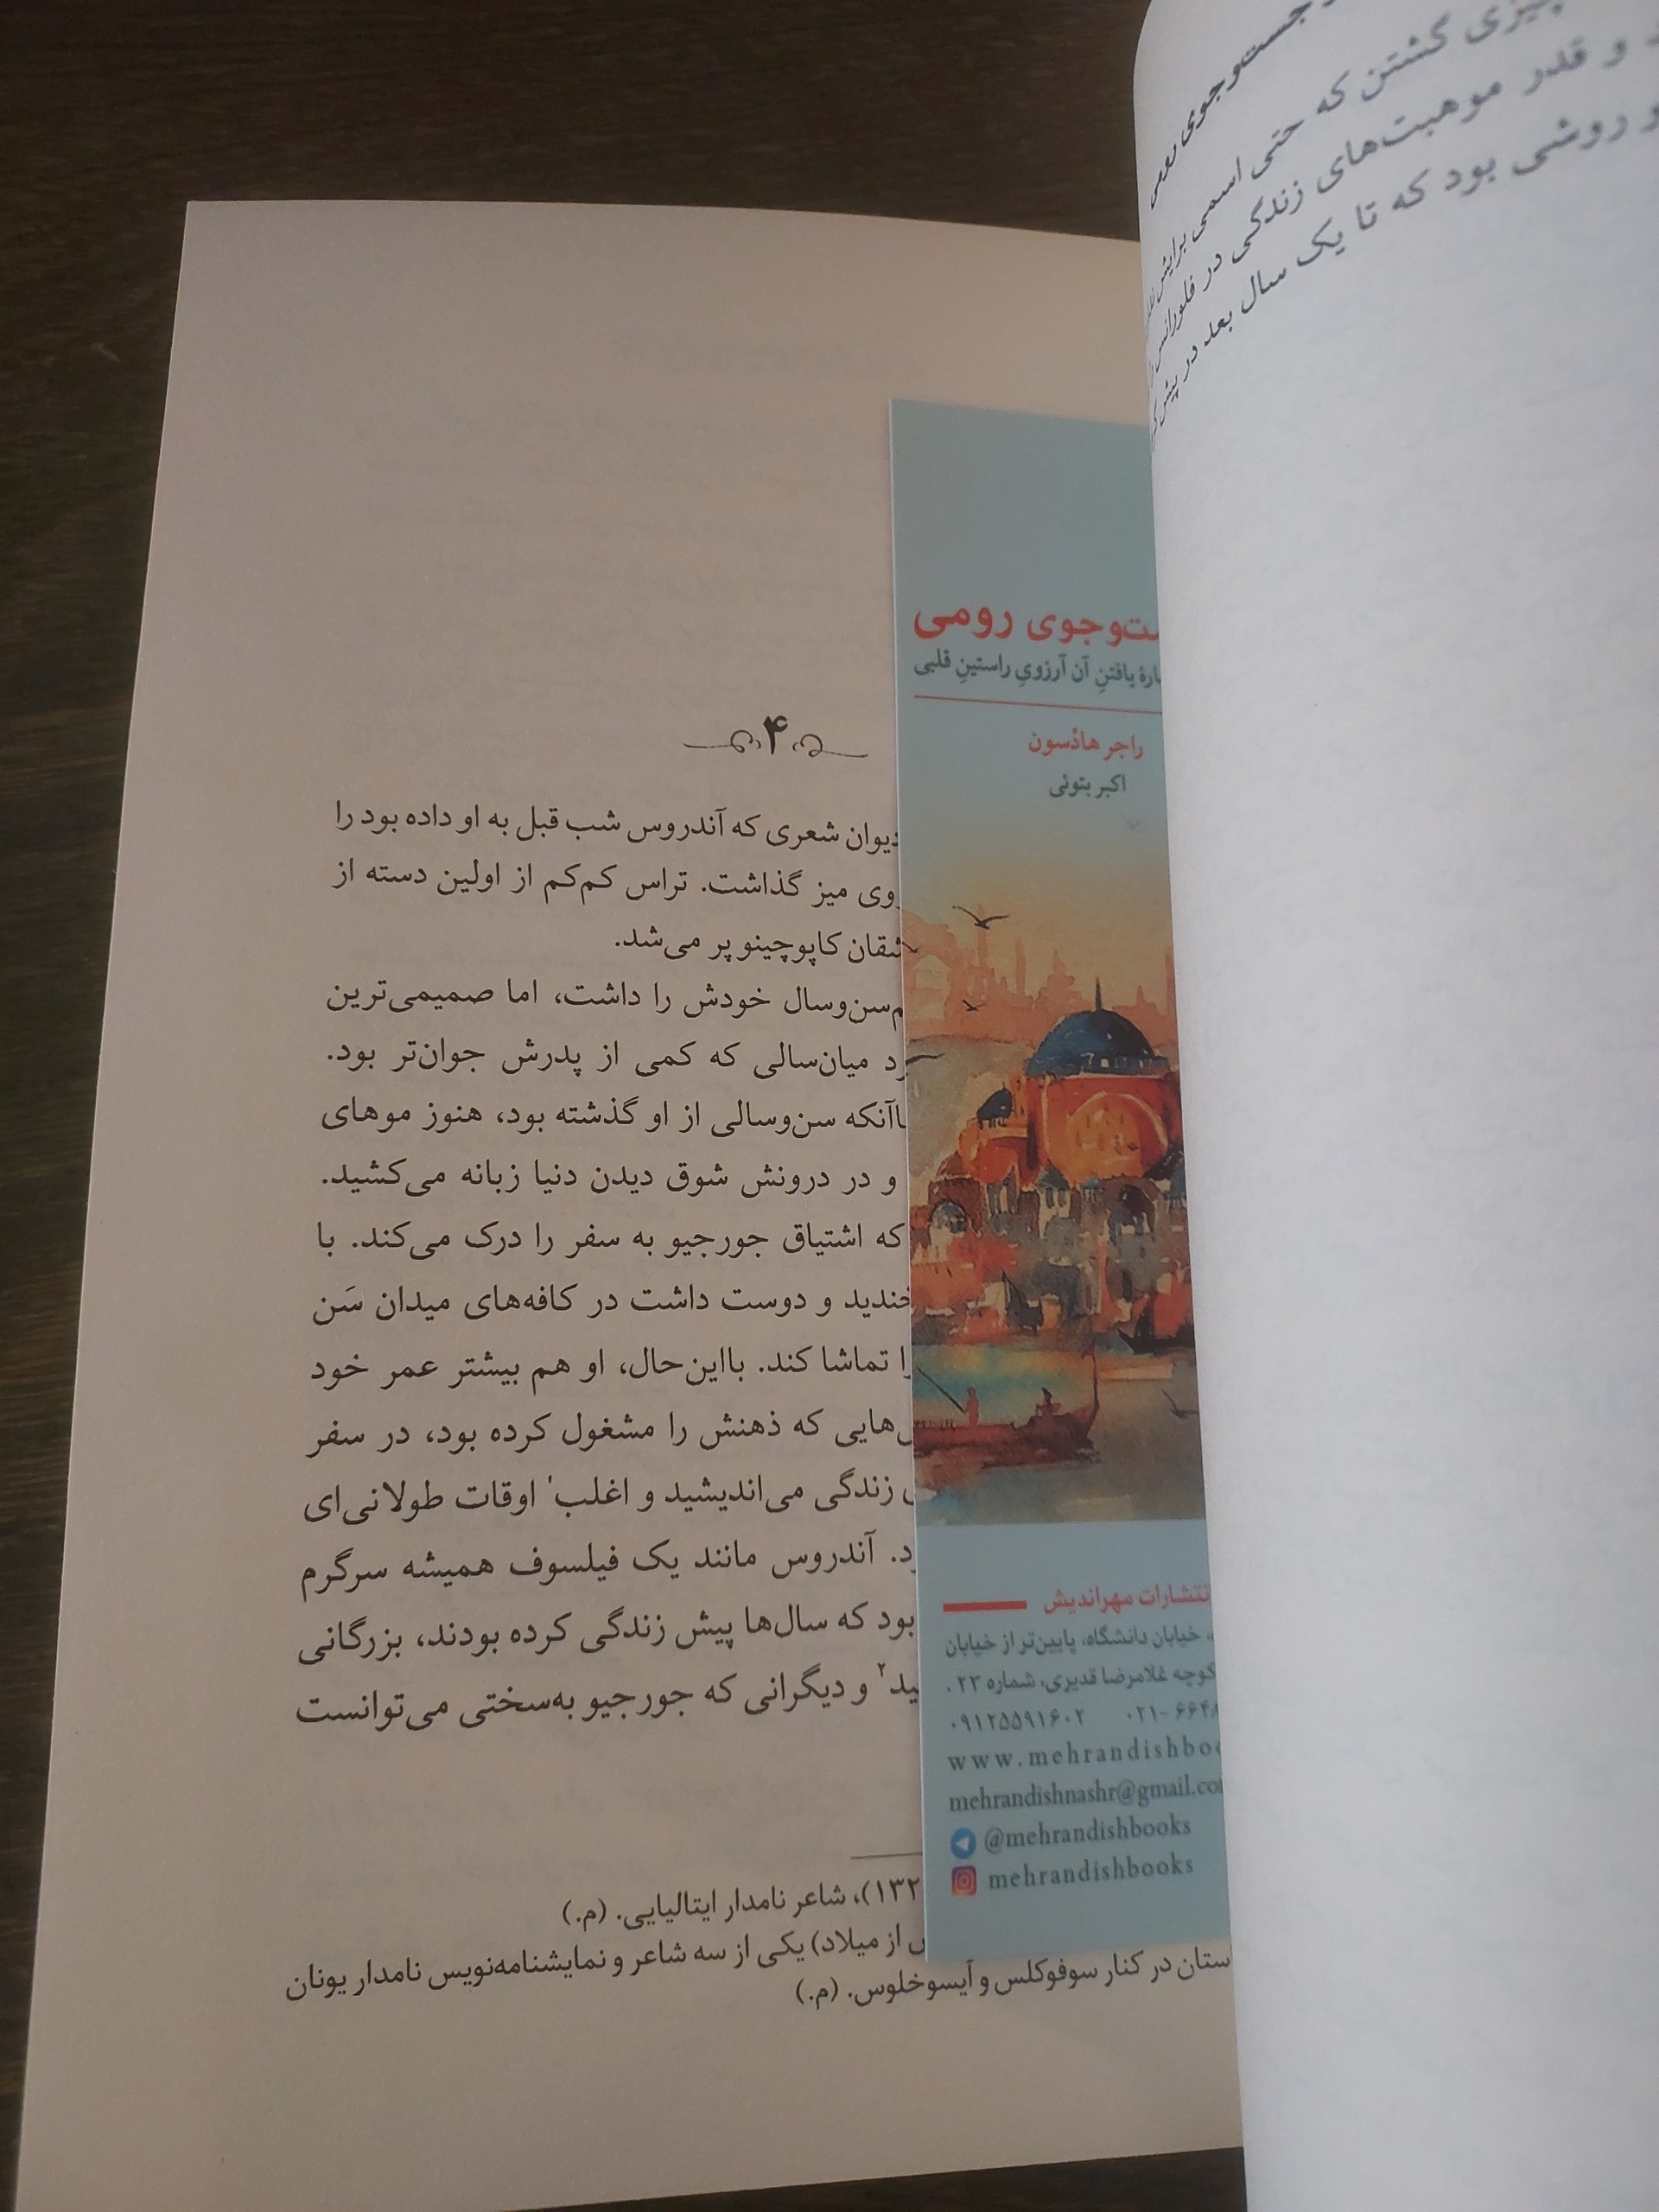 جست‌وجوی رومی
چیزی گشتن که حتی اسمی برایش
و قدر موهبت‌های زندگی در فلورانس را
و روشی بود که تا یک سال بعد در پیش
۴
دیوان شعری که آندروس شب قبل به او داده بود را
روی میز گذاشت. تراس کم‌کم از اولین دسته از
کاپوچینو پر می‌شد.
هم‌سن‌وسال خودش را داشت، اما صمیمی‌ترین
میان‌سالی که کمی از پدرش جوان‌تر بود.
باآنکه سن‌وسالی از او گذشته بود، هنوز موهای
و در درونش شوق دیدن دنیا زبانه می‌کشید.
که اشتیاق جورجیو به سفر را درک می‌کند. با
و دوست داشت در کافه‌های میدان سَن
را تماشا کند. بااین‌حال، او هم بیشتر عمر خود
که ذهنش را مشغول کرده بود، در سفر
زندگی می‌اندیشید و اغلب' اوقات طولانی‌ای
آندروس مانند یک فیلسوف همیشه سرگرم
بود که سال‌ها پیش زندگی کرده بودند، بزرگانی
و دیگرانی که جورجیو به‌سختی می‌توانست
شاعر نامدار ایتالیایی. (م.)
از میلاد) یکی از سه شاعر و نمایشنامه‌نویس نامدار یونان
در کنار سوفوکلس و آیسوخلوس. (م.)
ت‌وجوی رومی
یافتنِ آن آرزویِ راستینِ قلبی
راجر هادْسون
اکبر بتوئی
انتشارات مهراندیش
خیابان دانشگاه، پایین‌تر از خیابان
کوچه غلامرضا قدیری، شماره ۲۳.
۰۲۱-۶۶۴۸ ۰۹۱۲۵۵۹۱۶۰۲
www.mehrandishboo
mehrandishnashr@gmail.co
@mehrandishbooks
mehrandishbooks